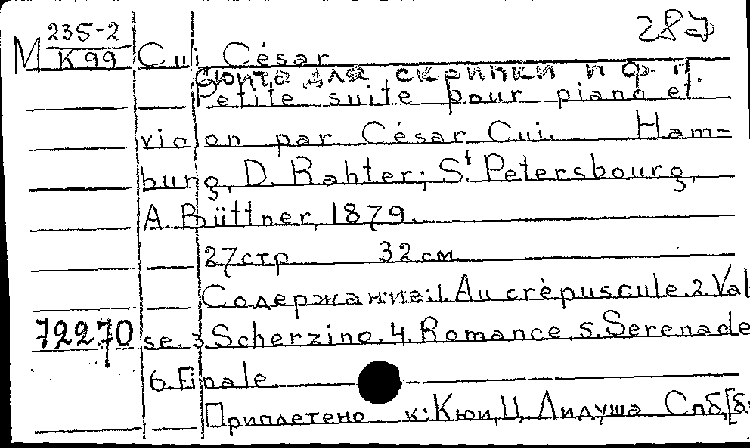 235-2 287
М К 99 Cui César
Сюита для скрипки и ф. п.
Petite suite pour piano et
violon par César Cui. Ham=
burg, D. Rahter; St Petersbourg,
A. Büttner, 1879.
27 стр 32 см
Содержание: 1. Au crépuscule. 2. Val
72270 se. 3 Scherzino. 4. Romance. 5. Serenade
6. Finale
Приплетено к: Кюи, Ц. Лидуша Спб, [б.